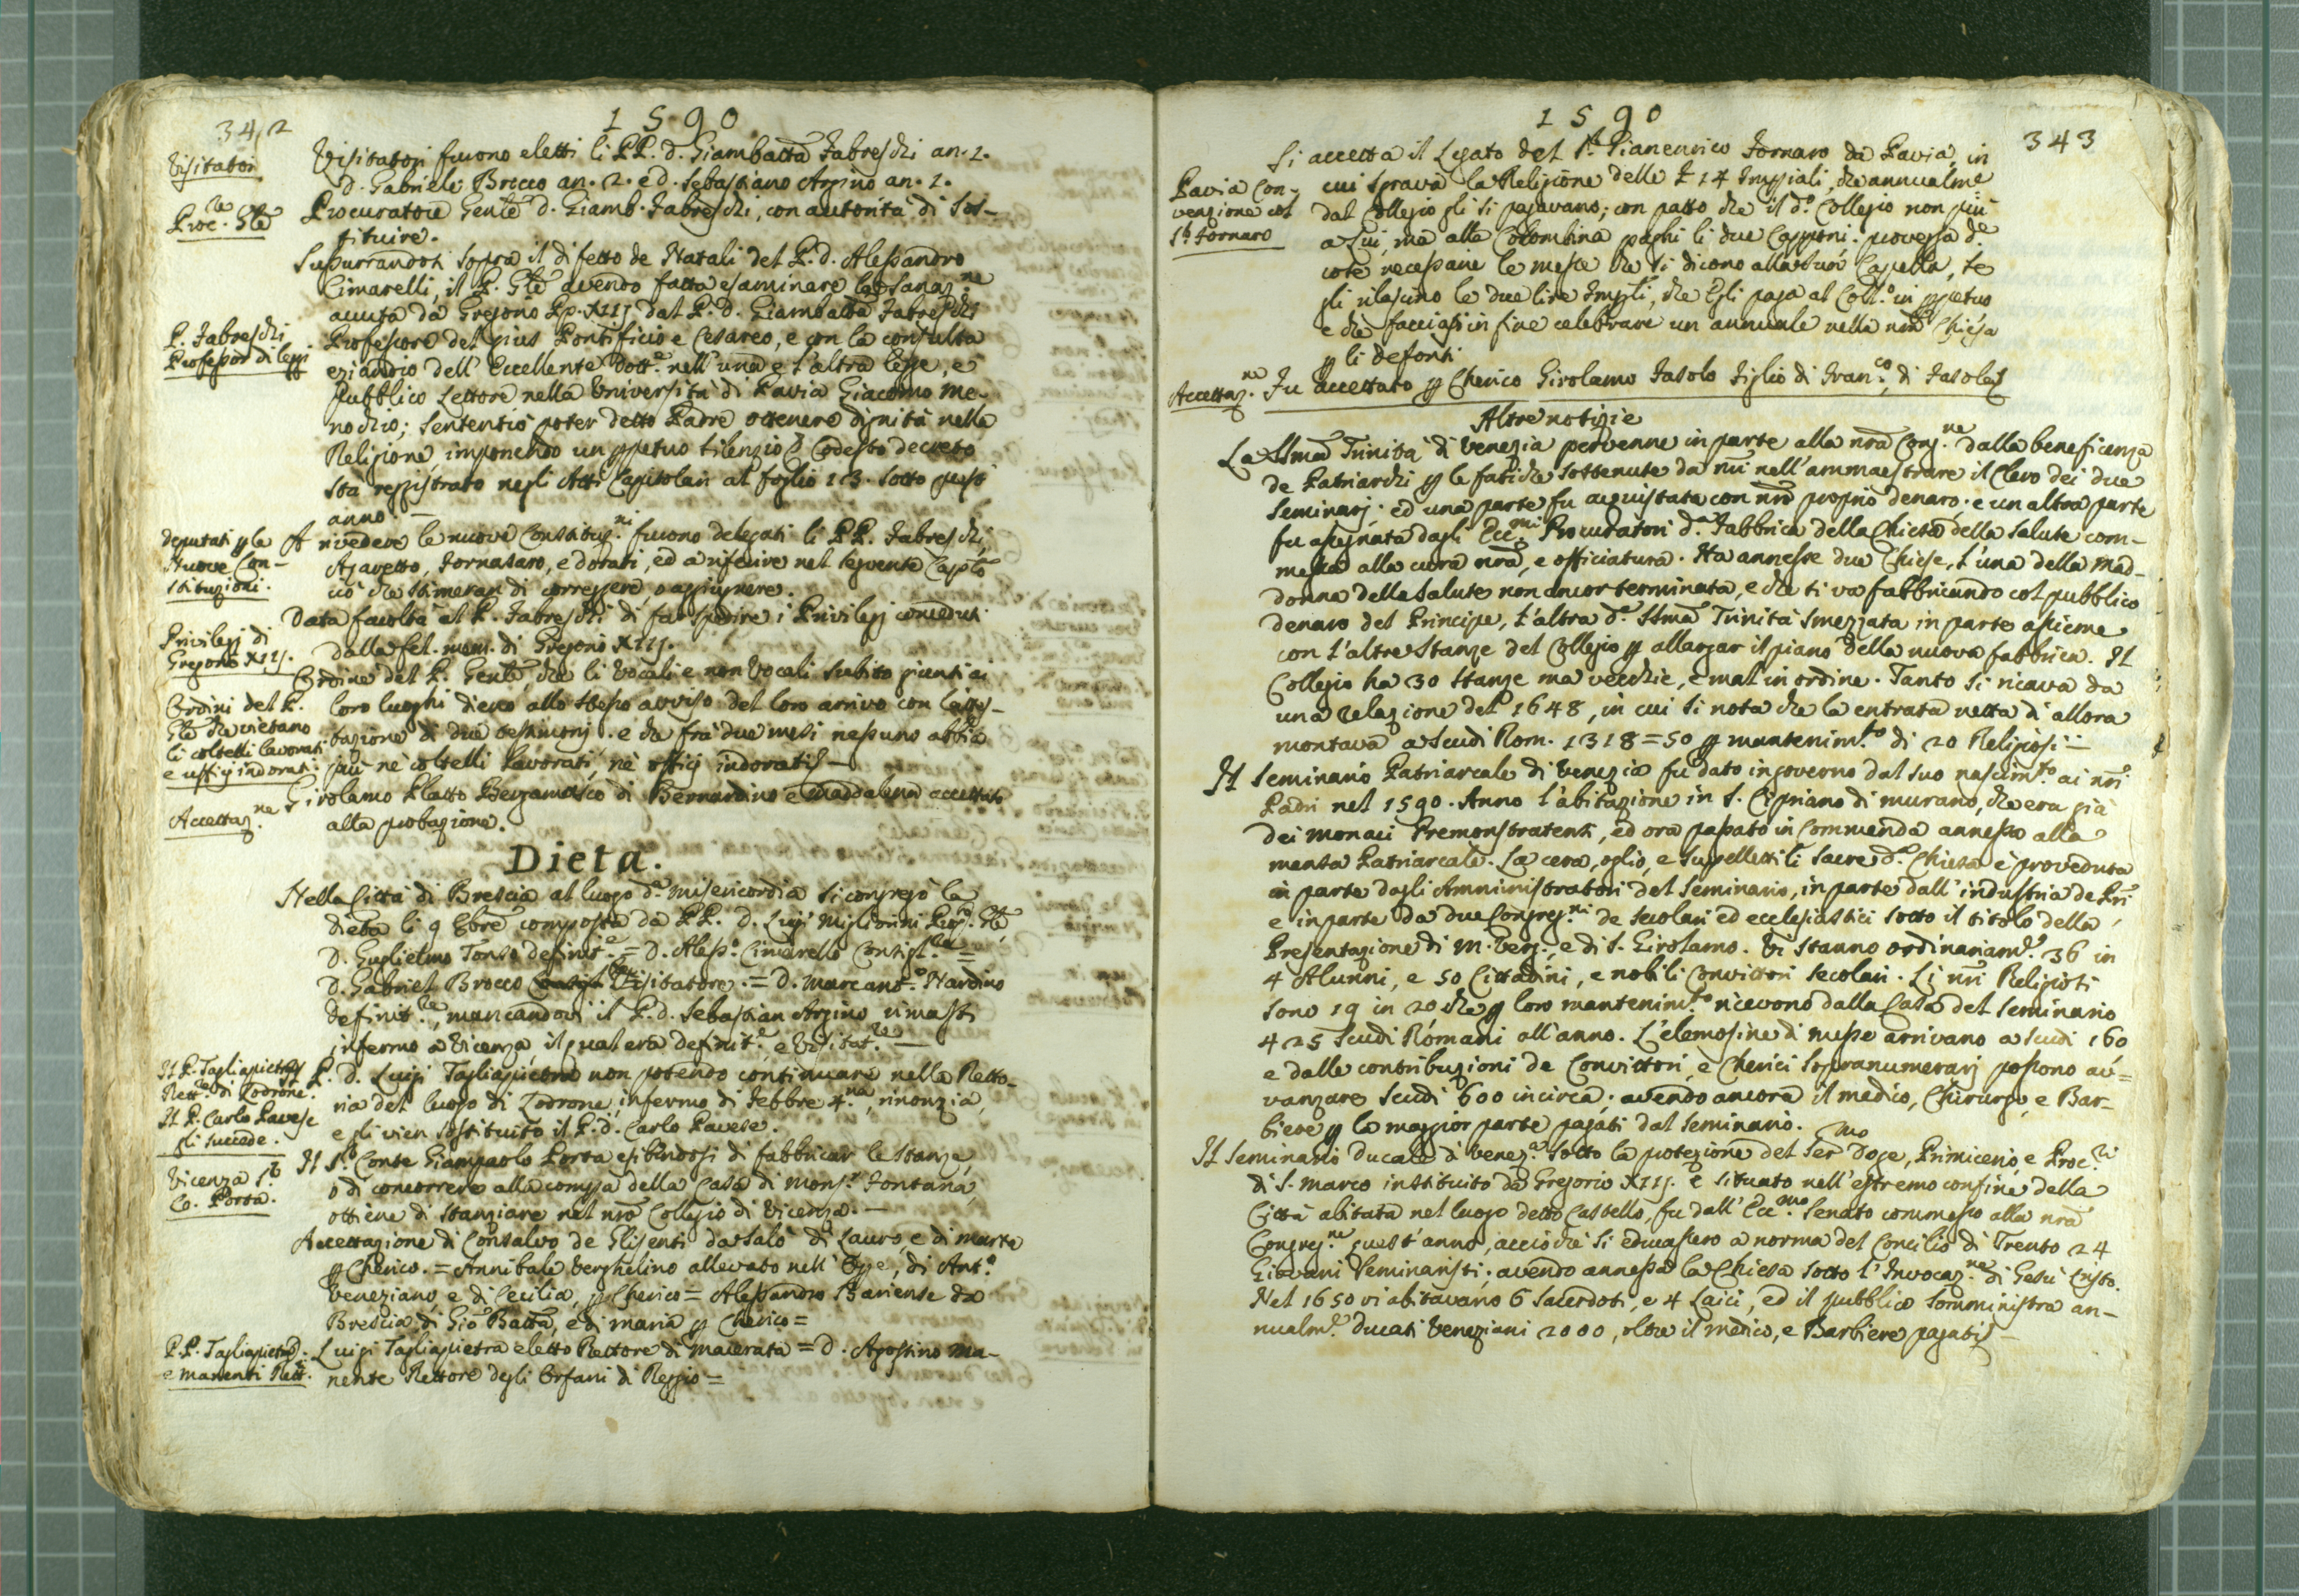 342
1590
Visitatori
Visitatori furono eletti li PP. d. Giambatta Fabreschi an. 1.
d. Gabriele Brocco an. 2. e d. Sebastiano Arpino an. 1.
Proc.re Gñle
Procuratore Genle d. Giamb. Fabreschi, con autorità di sos-
tituire.
Susurrandosi sopra il difetto de Natali del P. d. Alessandro
Cimarelli, il P. Gñle avendo fatta esaminare la sanaz.ne
avuta da Gregorio Pp. XIIJ dal P. d. Giambatta Fabreschi
P. Fabreschi
Professor di leggi
Professore del gius Pontificio e Cesareo, e con la consulta
eziandio dell' Eccellente Dott.e nell' una e l'altra legge, e
Pubblico Lettore nella Università di Pavia Giacomo Me-
nochio; sentenziò poter detto Padre ottenere dignità nella
Religione, imponendo un ppetuo silenzio. Codesto decreto
sta reggistrato negli Atti Capitolari al foglio 113. sotto quest
anno. —
Deputati p le
Nuove Con-
stituzioni.
A rivedere le nuove Constituz.ni furono delegati li PP. Fabreschi,
Agavetto, Fornasaro, e Dorati, ed a riferire nel seguente Caplo
ciò che stimeran di correggere o aggiugnere.
Privilegj di
Gregorio XIIJ.
Data facoltà al P. Fabreschi di far spedire i Privilegj conceduti
dalla fel. mem. di Gregorio XIIJ.
Ordini del P.
Gñle che vietano
li coltelli lavorati
e ufficj indorati.
Ordine del P. Genle, che li Vocali e non Vocali subito giunti ai
loro luoghi dieno allo stesso avviso del loro arrivo con l'atte-
stazione di due testimonj. e che frà due mesi nessuno abbia
più nè coltelli lavorati, nè officj indorati —
Accettaz.ne
Girolamo Platto Bergamasco di Bernardino e Maddalena accettato
alla probazione.
Dieta.
Nella Città di Brescia al luogo d.a Misericordia si congregò la
dieta li 9 8bre composta da PP. D. Luigi Migliorini Prep.o Gñle,
D. Guglielmo Tonso definit.e = D. Aless.o Cimarello Consigl.re =
D. Gabriel Brocco Visitatore. = D. Marcant.o Nardino
definit.re, mancandovi il P. d. Sebastian Arpino rimasto
infermo a Vicenza, il qual era definit.e e Visitat.re —
Il P. Tagliapietra
Rett.re di Zodrone.
Il P. Carlo Pavese
gli succede.
Il P. D. Luigi Tagliapietra non potendo continuare nella Retto-
ria del luogo di Zodrone, infermo di febbre 4.na, rinonzia,
e gli vien sostituito il P. d. Carlo Pavese.
Vicenza S.r
Co. Porta.
Il S.r Conte Giampaolo Porta esibendosi di fabbricar le stanze,
o di concorrere alla compra della Casa di Mons.r Fontana,
ottiene di stanziare nel nro Collegio di Vicenza. —
Accettazione di Consalvo de Glisenti da Salò di Lauro, e di Marta
p Cherico. = Annibale Verghelino allevato nell' Ospe., di Ant.o
Veneziano e di Cecilia, p Cherico = Alessandro Bariense da
Brescia di Gio Batta, e di Maria p Cherico =
PP. Tagliapietra
e Manenti Rett.i
Luigi Tagliapietra eletto Rettore di Macerata = D. Agostino Ma-
nente Rettore degli Orfani di Reggio =
1590
343
Pavia Con-
venzione col
S.r Fornaro
Si accetta il Legato del S.r Gianenrico Fornaro da Pavia, in
cui sgrava la Religione delle £ 14 Imperiali, che annualme
dal Collegio gli si pagavano; con patto che il d.o Collegio non più
a Lui, ma alla Colombina paghi li due Capponi. provegga d.e
cose necessarie le messe che si dicono alla sua Capella, se
gli rilascino le due lire Impli, che Egli paga al Coll.o in ppetuo
e che facciasi in fine celebrare un annuale nella nra Chiesa
p li defonti.
Accettaz.ne
Fu accettato p Cherico Girolamo Fasolo figlio di Fran.co di Fasolo
Altre notizie
La SSma Trinità di Venezia pervenne in parte alla nra Cong.ne dalla beneficenza
de Patriarchi p le fatiche sottenute da nri nell' ammaestrare il Clero dei due
Seminarj; ed una parte fu acquistata con nro proprio denaro; e un altra parte
fu assegnata dagli Ecc.mi Procuratori d.a Fabbrica della Chiesa della Salute com-
messa alla cura nra, e officiatura. Ha annesse due Chiese, l'una della Mad-
donna della Salute non ancor terminata, e che si va fabbricando col pubblico
denaro del Principe, l'altra d.a SSma Trinità smezzata in parte assieme
con l'altre Stanze del Collegio p allargar il piano della nuova fabbrica. Il
Collegio ha 30 Stanze ma vecchie, e mal in ordine. Tanto si ricava da
una relazione del 1648, in cui si nota che la entrata netta di allora
montava a Scudi Rom. 1318=50 p mantenim.to di 20 Religiosi —
Il Seminario Patriarcale di Venezia fu dato in governo dal suo nascim.to ai nri
Padri nel 1590. Anno l'abitazione in S. Cipriano di Murano, che era già
dei Monaci Premonstratensi, ed ora passato in Commenda annesso alla
mensa Patriarcale. La cera, oglio, e suppellettili sacre d.a Chiesa è proveduta
in parte dagli Amministratori del Seminario, in parte dall' industria de Pri
e in parte da due Congreg.ni de Secolari ed ecclesiastici sotto il titolo della
Presentazione di M. Verg.e, e di S. Girolamo. Vi stanno ordinariam.e 36 in
4 Alunni, e 50 Cittadini, e nobili Convittori Secolari. Li nri Religiosi
sono 19 in 20 che p loro mantenim.to ricevono dalla Casa del Seminario
425 Scudi Romani all' anno. L'elemosine di messe arrivano a scudi 160
e dalle contribuzioni de Convittori, e Cherici sopranumerarj possono av=
vanzare scudi 600 incirca; avendo ancora il medico, Chirurgo, e Bar-
biere p la maggior parte pagati dal Seminario.
Il Seminario Ducale di Venez.a sotto la protezione del Ser.mo Doge, Primicerio, e Proc.ri
di S. Marco instituito da Gregorio XIIJ. è situato nell' estremo confine della
Città abitata nel luogo detto Castello, fu dall' Ecc.mo Senato commesso alla nra
Congreg.ne quest' anno, acciochè si educassero a norma del Concilio di Trento 24
Giovani Seminaristi; avendo annessa la Chiesa sotto l'Invocaz.ne di Gesù Cristo.
Nel 1650 vi abitavano 6 Sacerdoti, e 4 Laici, ed il pubblico somministra an-
nualm.e Ducati Veneziani 2000, oltre il medico, e Barbiere pagati —